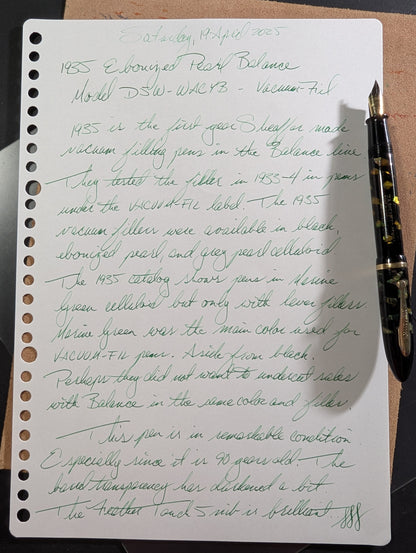 Saturday, 19 April 2025
1935 Ebonized Pearl Balance
Model D5W-WACYB - Vacuum-Fil
1935 is the first year Sheaffer made
vacuum filling pens in the Balance line
They tested the filler in 1933-4 in pens
under the VACUUM-FIL label. The 1935
vacuum fillers were available in black,
ebonized pearl, and grey pearl celluloid.
The 1935 catalog shows pens in Marine
Green celluloid but only with lever fillers.
Marine Green was the main color used for
VACUUM-FIL pens. Aside from black.
Perhaps they did not want to undercut sales
with Balance in the same color and filler.
This pen is in remarkable condition.
Especially since it is 90 years old. The
barrel transparency has darkened a bit
The Feather Touch 5 nib is brilliant